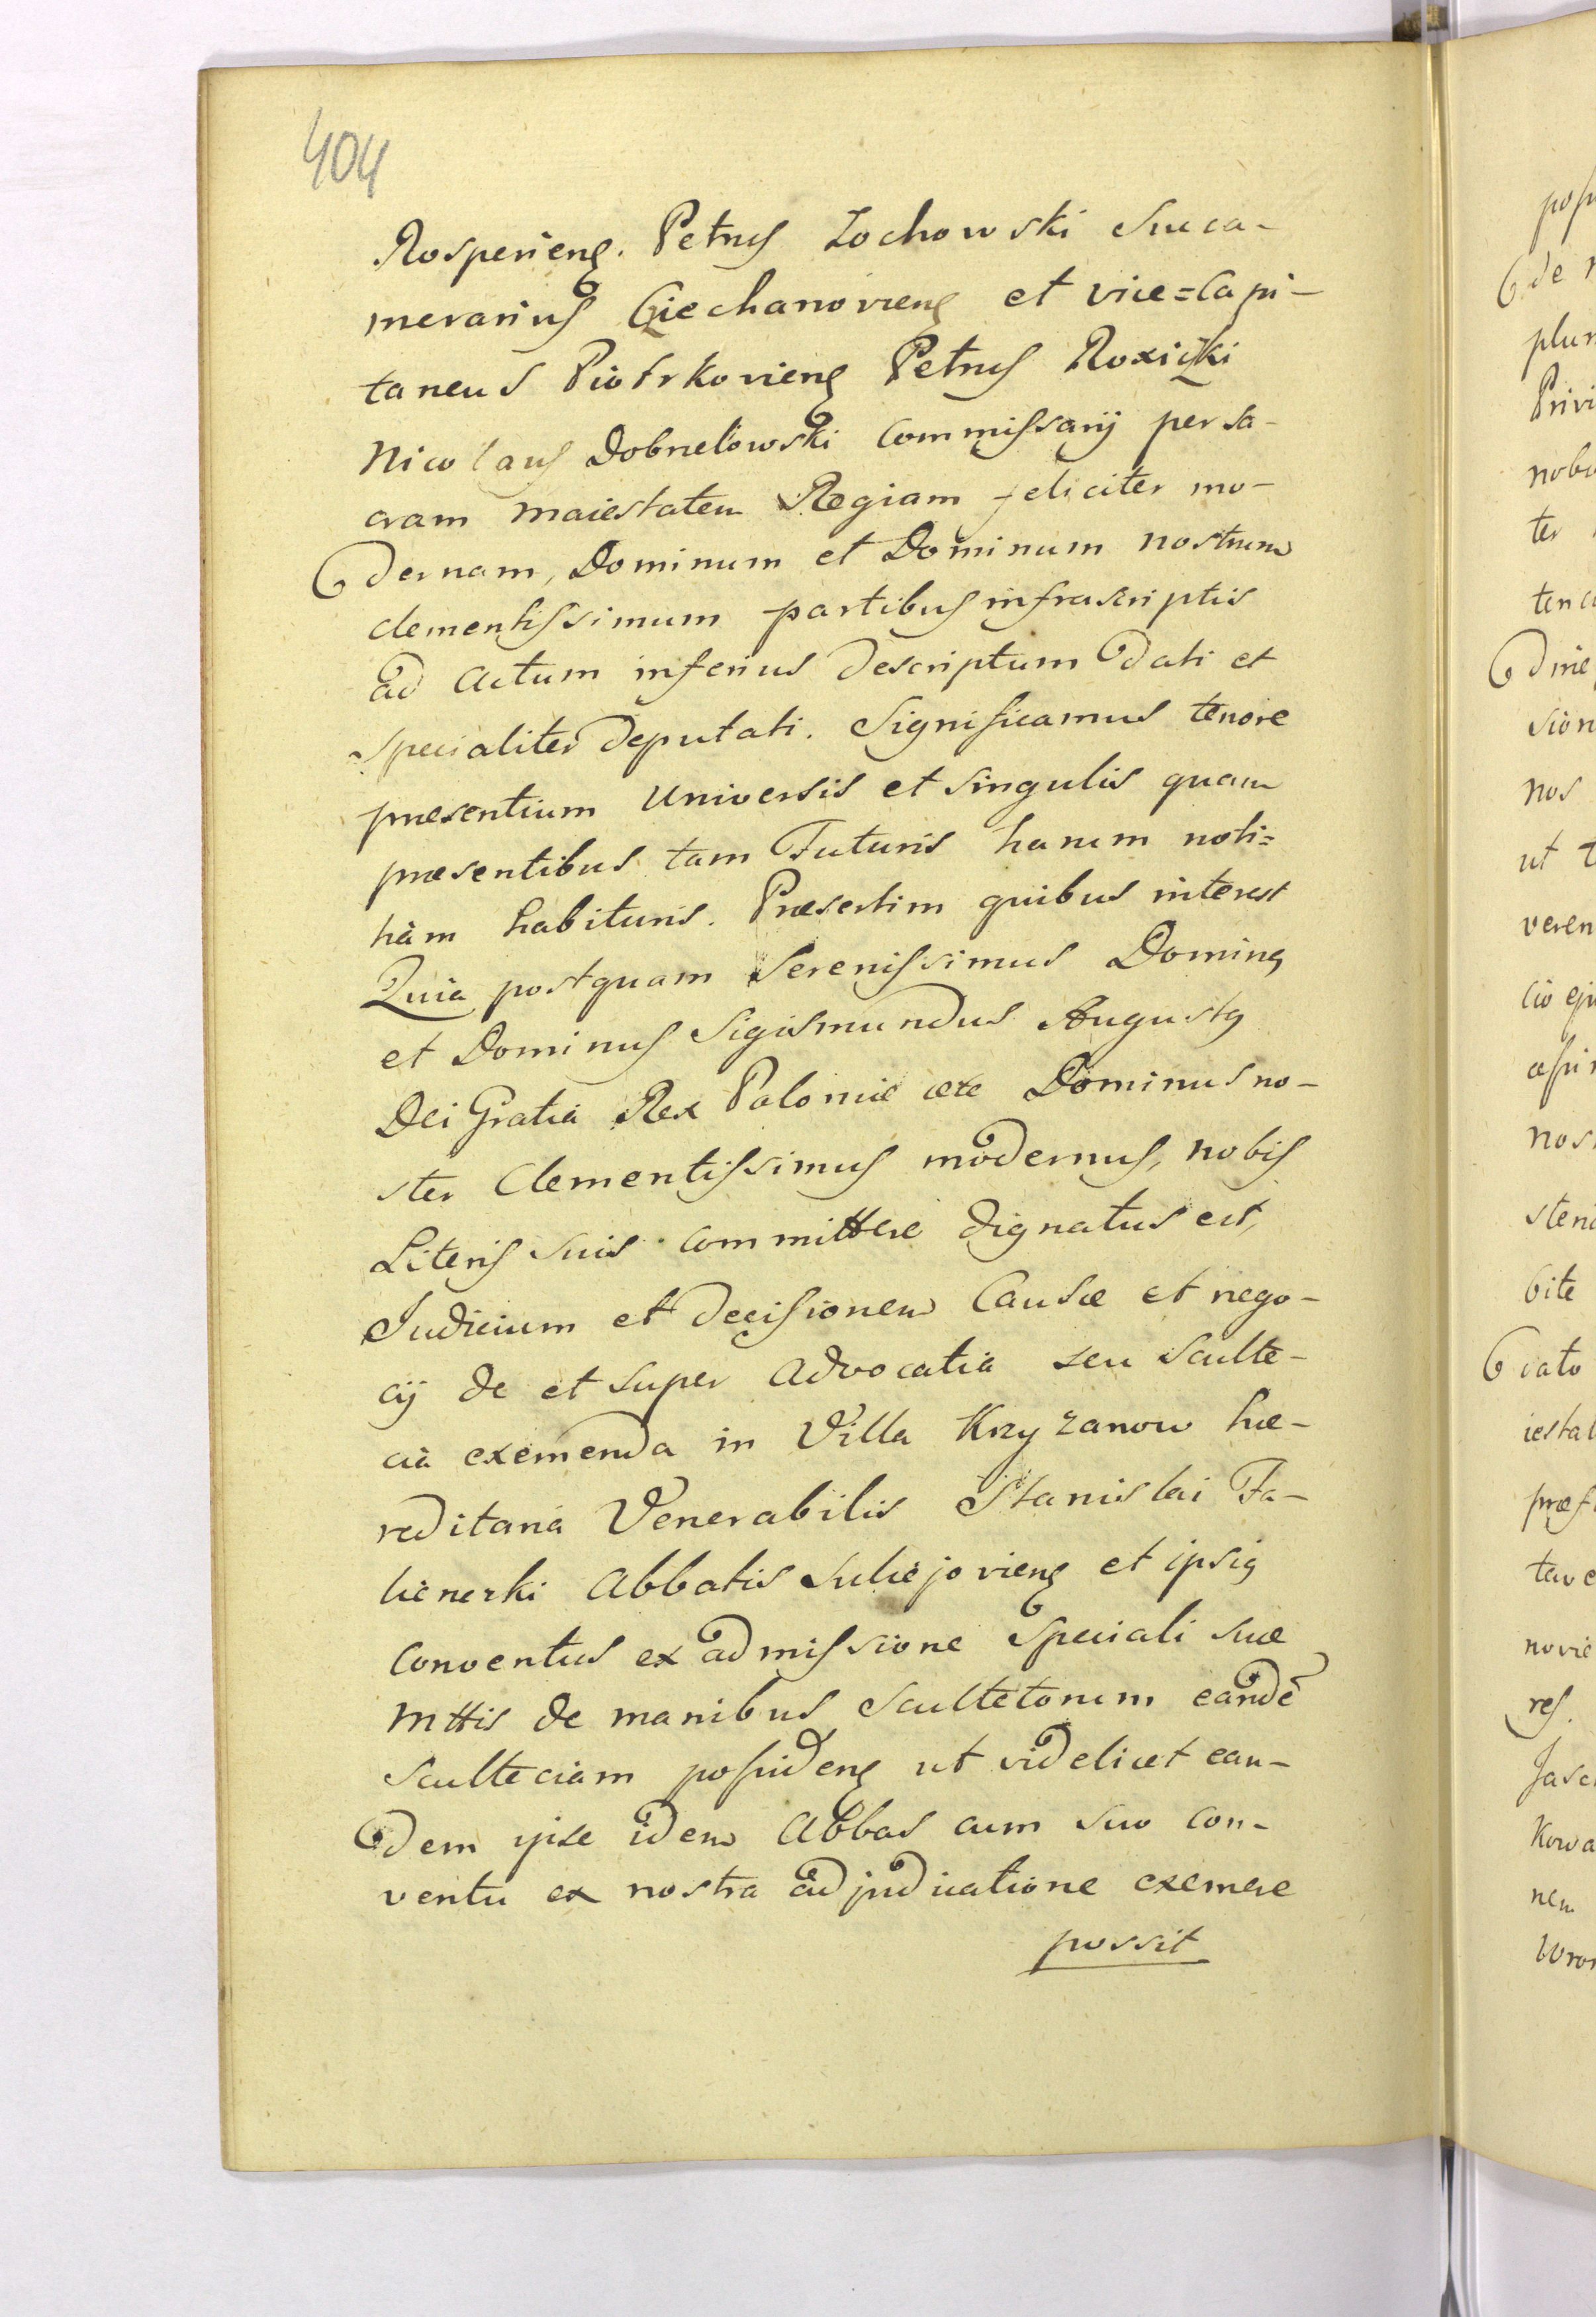 404
Rosperiens. Petrus Zochowski Succa-
merarius Ciechanoviens et vice=Capi-
taneus Piotrkoviens Petrus Roxicki
Nicolaus Dobnelowski Commissarij per sa-
cram maiestatem Regiam feliciter mo-
dernam, Dominum et Dominum nostrum
clementissimum partibus infrascriptis
ad actum inferius descriptum dati et
specialiter deputati. Significamus tenore
praesentium Universis et singulis quam
praesentibus tam Futuris harum noti=
tiam habituris. Praesertim quibus interest
Quia postquam Serenissimus Dominus
et Dominus Sigismundus Augustus
Dei Gratia Rex Poloniae etc Dominus no-
ster Clementissimus modernus, nobis
Literis suis committere dignatus est,
Iudicium et decisionem Causae et nego-
cij de et super advocatia seu sculte-
cia exemenda in Villa Krzyzanow hae-
reditaria Venerabilis Stanislai Fa-
lienczki Abbatis Sulejoviens et ipsius
Conventus ex admissione Speciali suae
Mttis de manibus Scultetorum eandē
Sculteciam possidens ut videlicet ean-
dem ipse idem Abbas cum suo con-
ventu ex nostra adjudicatione exemere
possit